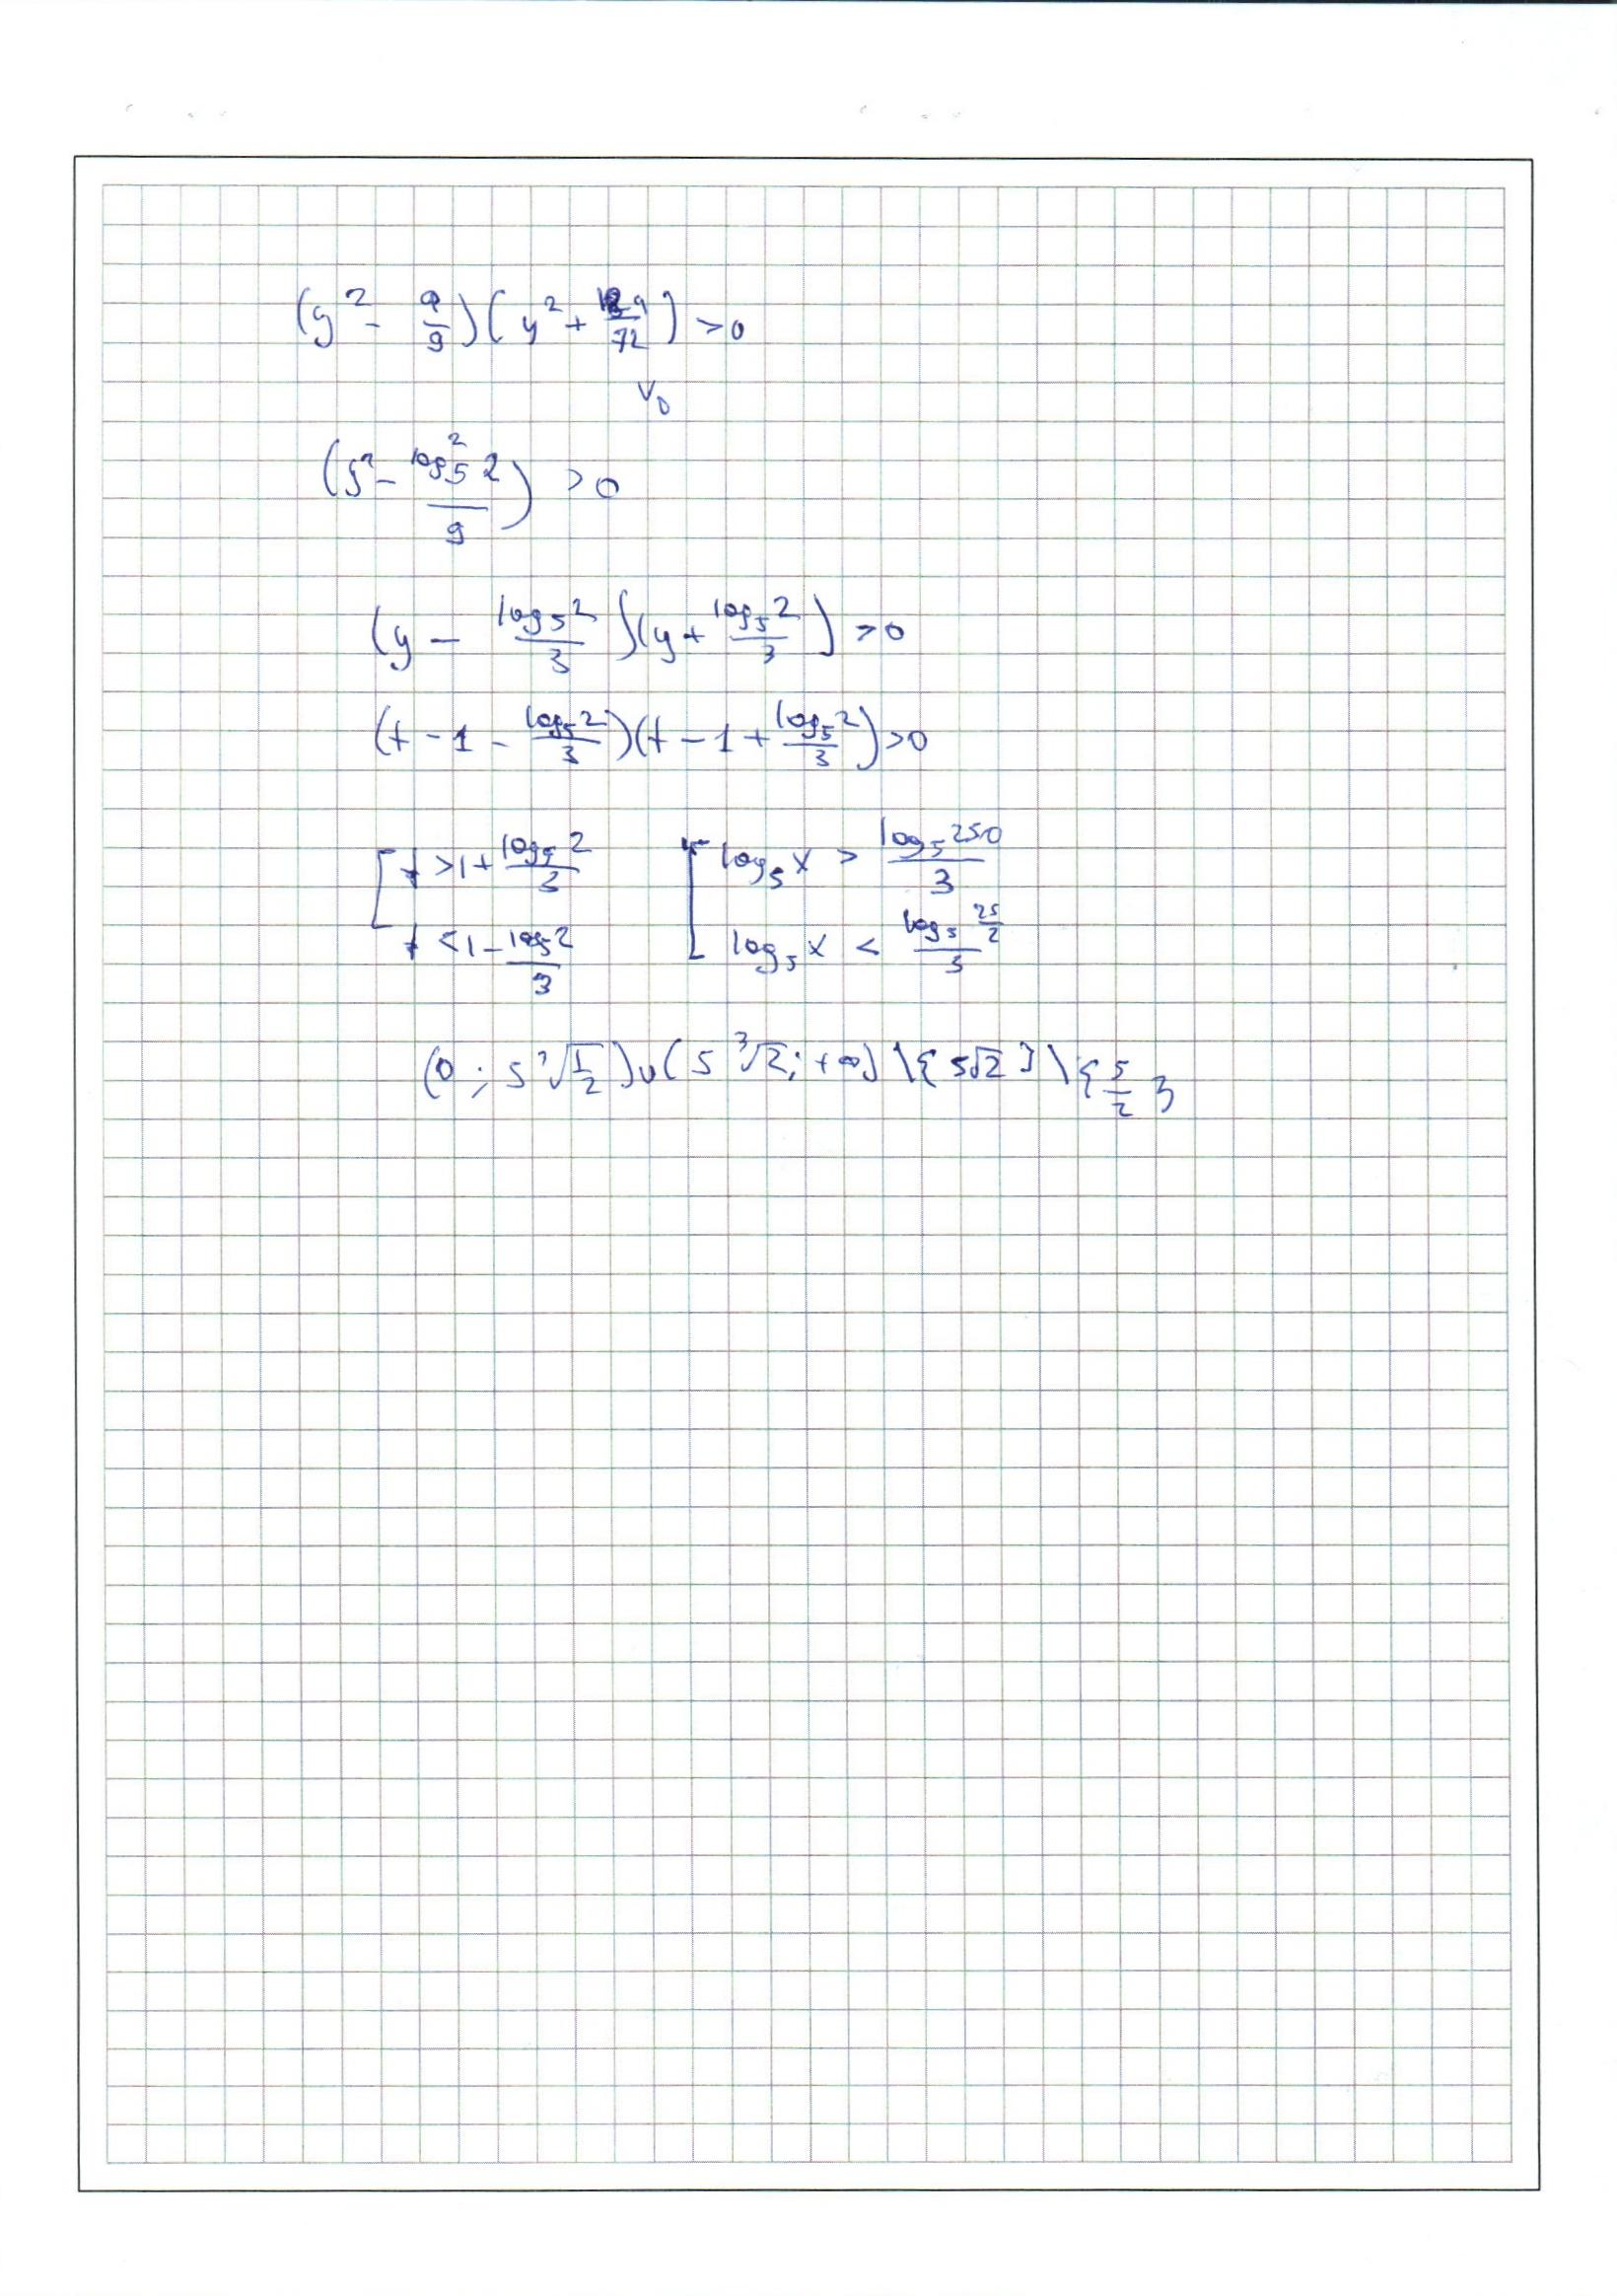 (y² - q/9)(y² + q/72) > 0
∨0
(y² - log₅²2/9) > 0
(y - log₅2/3)(y + log₅2/3) > 0
(t - 1 - log₅2/3)(t - 1 + log₅2/3) > 0
[ t > 1 + log₅2/3 [ log₅x > log₅250/3
t < 1 - log₅2/3 log₅x < log₅(25/2)/3
(0; 5∛(1/2)) ∪ (5∛2; +∞) \ {5√2} \ {5/2}